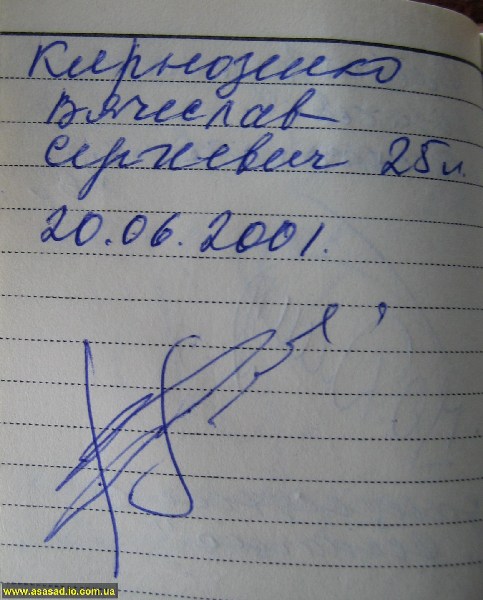 Кирнозенко
Вячеслав
Сергеевич 25 л.
20.06.2001.
www.asasad.io.com.ua